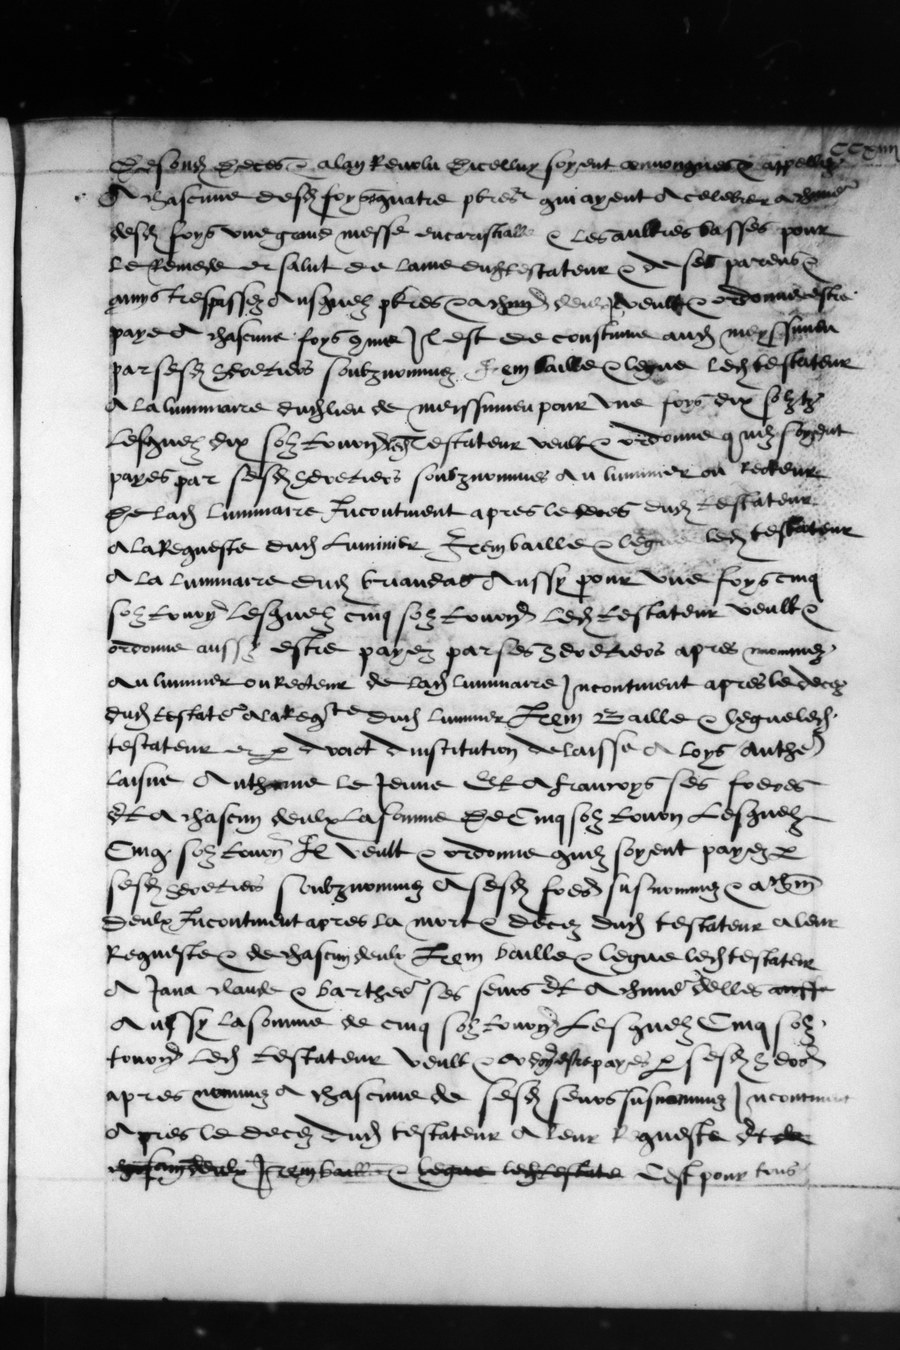 CCxiiii
De sond deces & a lan Revolu dicelluy soyent convoques & appelles
A chascune desd foys quatre pbres qui ayent A celebrer a chune
desd foys une grand messe encaristiall & les aultres basses pour
Le Remede et salut de lame dud testateur & de ses parens &
amys trespassez Ausquelz pbres & a chun deulx veult & ordonne estre
paye A chascune foys come Il est de coustume aud meyssimieu
par sesd heretiers soubznommez Item baille & legue led testateur
A la luminaire dud lieu de meyssimieu pour une foys dix solz tz
Lesquelz dix solz tourn led testateur veult & ordonne quilz soyent
payes par sesd heretiers soubznommes Au luminier ou Recteur
De lad luminaire Incontinent apres le deces dud testateur
A la Requeste dud Luminier Item baille & legue led testateur
A la luminaire dud Aussy pour une foys cinq
solz tourn Lesquelz cinq solz tourn led testateur veult &
ordonne aussy estre payez par ses heretiers apres nommez
Au luminier ou Recteur de lad luminaire Incontinent apres le decez
dud testate a la Reqste dud luminier Item Baille & legue led
testateur et p droict dinstitution delaisse A Loys Anthe
laisne Anthoine le Jeune Et A francoys ses freres
Et A chascun deulx la somme De Cinq solz tourn Lesquelz
Cinq solz tourn Il veult & ordonne quilz soyent payez p
sesd heretiers soubznommez A sesd freres susnommez & a chun
deulx Incontinent apres la mort & decez dud testateur a leur
Requeste & de chascun deulx Item baille & legue led testateur
A Jana claude & barthee ses seurs Et A chune delles
Aussy la somme de cinq solz tourn Lesquelz Cinq solz
tourn Led testateur veult & ordonne estre payes p sesd heretiers
apres nommez A chascune de sesd seurs susnommez Incontinent
Apres le decez dud testateur A leur Requeste Et de
chascune delles Item baille & legue led testate Cest pour tous